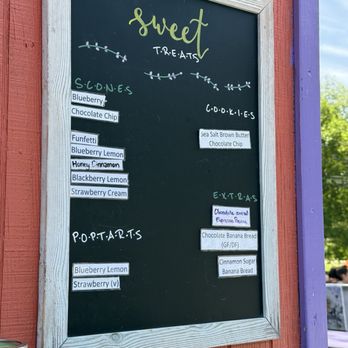 sweet
T·R·E·A·T·S
S·C·O·N·E·S
Blueberry
Chocolate Chip
Funfetti
Blueberry Lemon
Honey Cinnamon
Blackberry Lemon
Strawberry Cream
P·O·P·T·A·R·T·S
Blueberry Lemon
Strawberry (v)
C·O·O·K·I·E·S
Sea Salt Brown Butter
Chocolate Chip
E·X·T·R·A·S
Chocolate Banana Bread
(GF/DF)
Cinnamon Sugar
Banana Bread